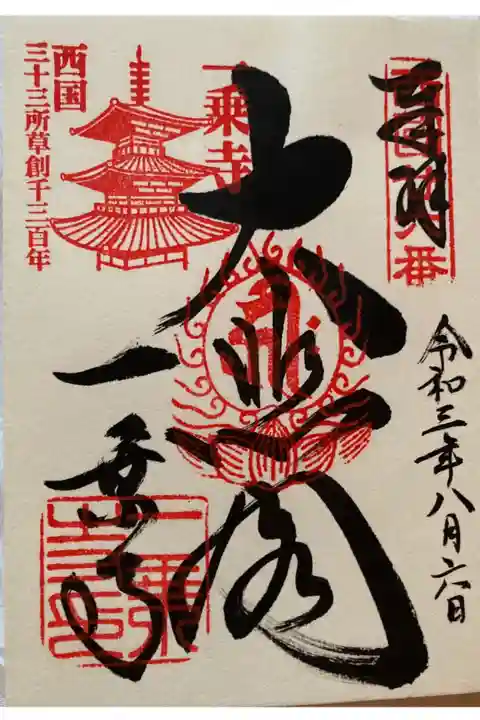 奉拝
令和三年八月六日
大悲閣
一乗寺
西国
三十三所草創千三百年
一乗寺